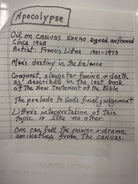 Apocalypse
Oil on canvas 50x40 signed and framed
Circa 1968
Artist: Francis Litna 1901-1973
Man's destiny in the balance
Conquest, slaughter famine & death
as described in the last book
of the New Testament of the Bible
The prelude to God's final judgement
Litna's interpretation of this
topic is like no other.
One can feel the power & drama
eminating from the canvas.